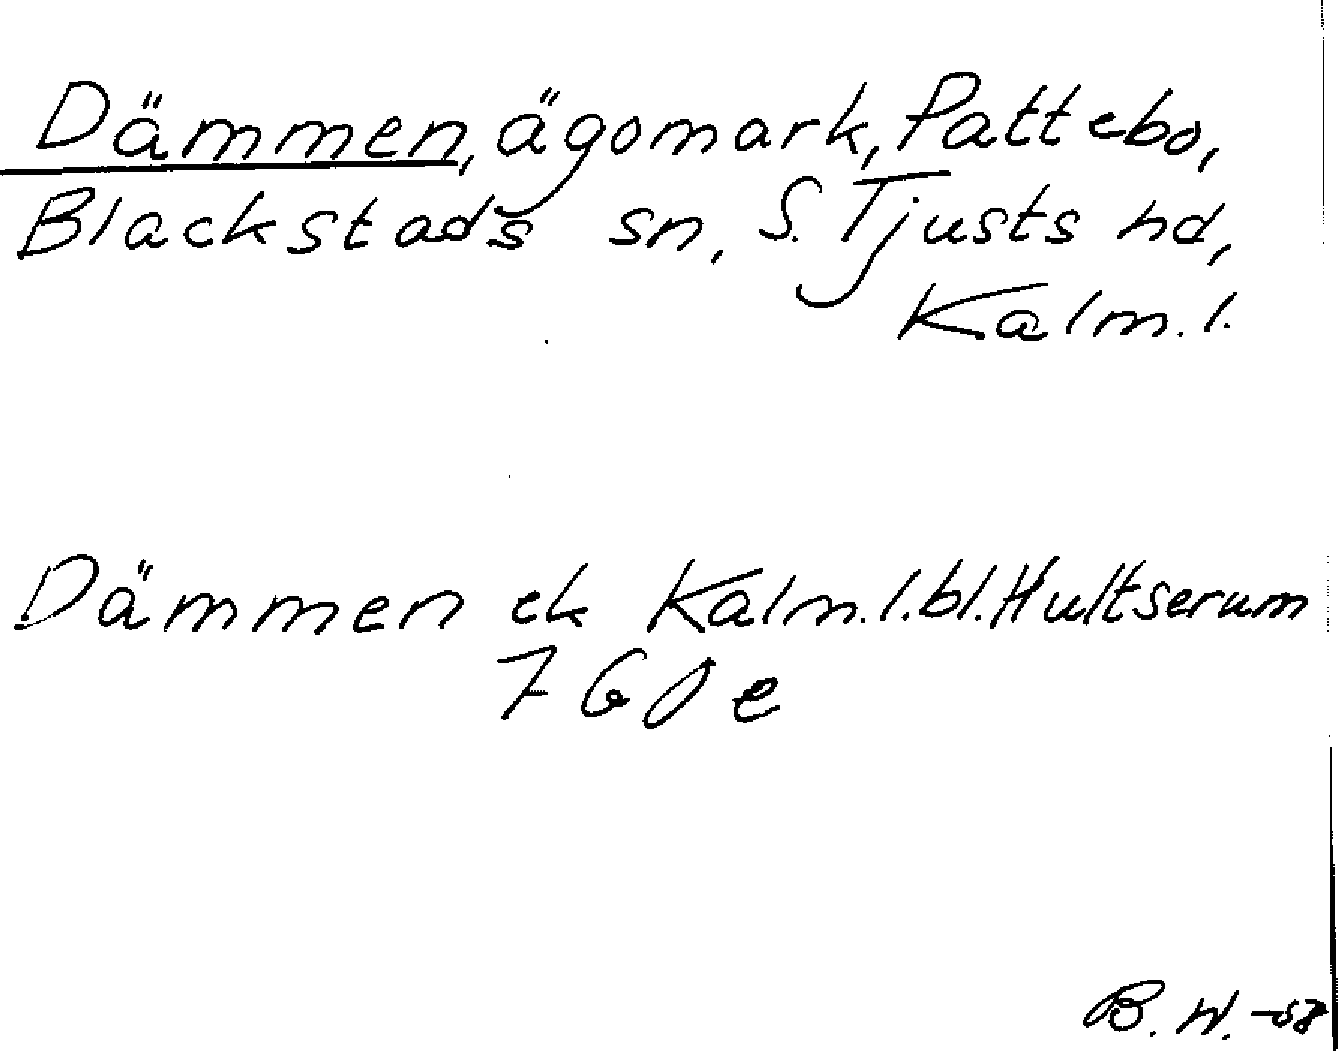 Dämmen, ägomark, Pattebo,
Blackstads sn, S. Tjusts hd,
Kalm. l.
Dämmen ek Kalm. l. bl. Hultserum
7 G 0 e
B. W. -58